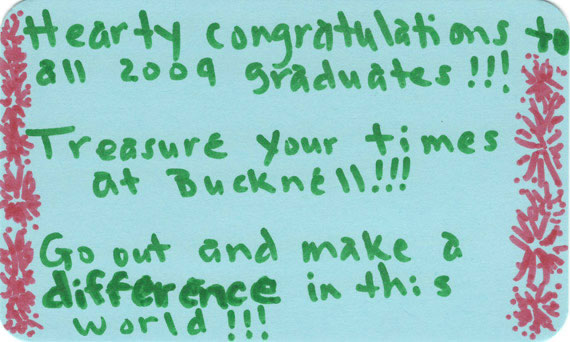 Hearty congratulations to
all 2009 graduates!!!
Treasure your times
at Bucknell!!!
Go out and make a
difference in this
world!!!